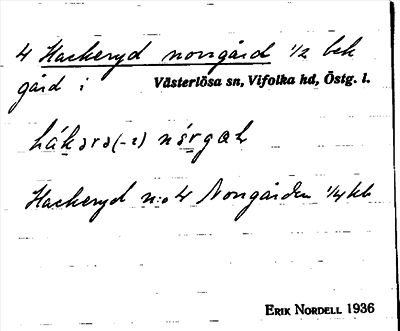 4 Hackeryd norrgård 1/2 bek
gård i Västerlösa sn, Vifolka hd, Östg. l.
hákərə(-2) nórgaḷ
Hackeryd n:o 4 Norrgården 1/4 kb
ERIK NORDELL 1936